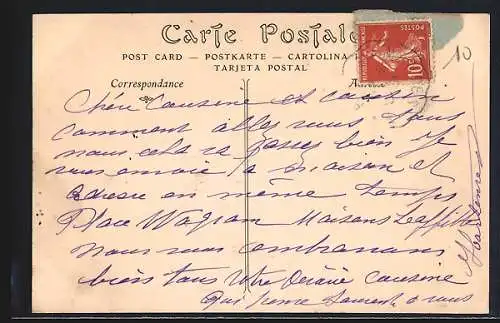 Carte Postale
POST CARD — POSTKARTE — CARTOLINA
TARJETA POSTAL
Correspondance
POSTES
10c
10
Chère Cousine et cousin
comment allez vous nous
nous cela se passes bien Je
vous envoie la maison et
adresse en même temps
Place Wagram Maisons Laffitte
nous vous embrassons
bien tous Votre cousine
Qui pense souvent a vous